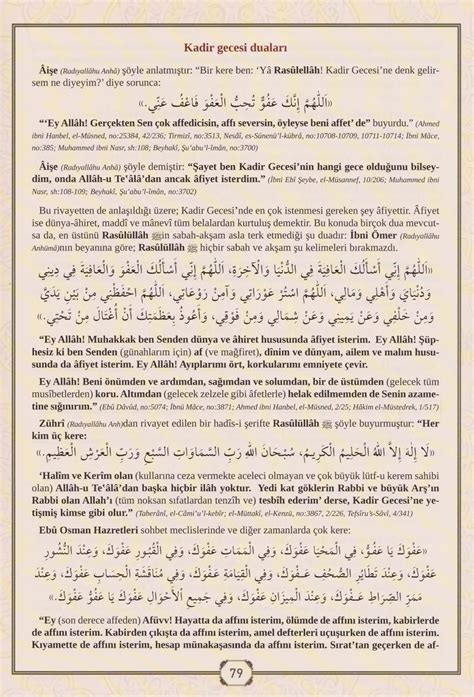 Kadir gecesi duaları
Âişe (Radıyallâhu Anhâ) şöyle anlatmıştır: “Bir kere ben: ‘Yâ Rasûlellâh! Kadir Gecesi’ne denk gelir-
sem ne diyeyim?’ diye sorunca:
«اَللّٰهُمَّ إِنَّكَ عَفُوٌّ تُحِبُّ الْعَفْوَ فَاعْفُ عَنِّي.»
“‘Ey Allâh! Gerçekten Sen çok affedicisin, affı seversin, öyleyse beni affet’ de” buyurdu.” (Ahmed
ibni Hanbel, el-Müsned, no:25384, 42/236; Tirmizî, no:3513, Nesâî, es-Sünenü’l-kübrâ, no:10708-10709, 10711-10714; İbni Mâce,
no:385; Muhammed ibni Nasr, sh:108; Beyhakî, Şu‘abu’l-îmân, no:3700)
Âişe (Radıyallâhu Anhâ) şöyle demiştir: “Şayet ben Kadir Gecesi’nin hangi gece olduğunu bilsey-
dim, onda Allâh-u Te‘âlâ’dan ancak âfiyet isterdim.” (İbni Ebî Şeybe, el-Müsannef, 10/206; Muhammed ibni
Nasr, sh:108-109; Beyhakî, Şu‘abu’l-îmân, no:3702)
Bu rivayetten de anlaşıldığı üzere; Kadir Gecesi’nde en çok istenmesi gereken şey âfiyettir. Âfiyet
ise dünya-âhiret, maddî ve mânevî tüm belalardan kurtuluş demektir. Bu konuda birçok dua mevcut-
sa da, en üstünü Rasûlüllâh ﷺ’in sabah-akşam asla terk etmediği şu duadır: İbni Ömer (Radıyallâhu
Anhümâ)nın beyanına göre; Rasûlüllâh ﷺ hiçbir sabah ve akşam şu kelimeleri bırakmazdı.
«اَللّٰهُمَّ إِنِّي أَسْأَلُكَ الْعَافِيَةَ فِي الدُّنْيَا وَالْآخِرَةِ، اَللّٰهُمَّ إِنِّي أَسْأَلُكَ الْعَفْوَ وَالْعَافِيَةَ فِي دِينِي
وَدُنْيَايَ وَأَهْلِي وَمَالِي، اَللّٰهُمَّ اسْتُرْ عَوْرَاتِي وَآمِنْ رَوْعَاتِي، اَللّٰهُمَّ احْفَظْنِي مِنْ بَيْنِ يَدَيَّ
وَمِنْ خَلْفِي وَعَنْ يَمِينِي وَعَنْ شِمَالِي وَمِنْ فَوْقِي، وَأَعُوذُ بِعَظَمَتِكَ أَنْ أُغْتَالَ مِنْ تَحْتِي.»
“Ey Allâh! Muhakkak ben Senden dünya ve âhiret hususunda âfiyet isterim. Ey Allâh! Şüp-
hesiz ki ben Senden (günahlarım için) af (ve mağfiret), dînim ve dünyam, ailem ve malım husu-
sunda da âfiyet isterim. Ey Allâh! Ayıplarımı ört, korkularımı emniyete çevir.
Ey Allâh! Beni önümden ve ardımdan, sağımdan ve solumdan, bir de üstümden (gelecek tüm
musîbetlerden) koru. Altımdan (gelecek zelzele gibi âfetlerle) helak edilmemden de Senin azame-
tine sığınırım.” (Ebû Dâvûd, no:5074; İbni Mâce, no:3871; Ahmed ibni Hanbel, el-Müsned, 2/25; Hâkim el-Müstedrek, 1/517)
Zührî (Radıyallâhu Anh)dan rivayet edilen bir hadîs-i şerifte Rasûlüllâh ﷺ şöyle buyurmuştur: “Her
kim üç kere:
«لَا إِلٰهَ إِلَّا اللّٰهُ الْحَلِيمُ الْكَرِيمُ، سُبْحَانَ اللّٰهِ رَبِّ السَّمَاوَاتِ السَّبْعِ وَرَبِّ الْعَرْشِ الْعَظِيمِ.»
‘Halîm ve Kerîm olan (kullarına ceza vermekte aceleci olmayan ve çok büyük lütf-u kerem sahibi
olan) Allâh-u Te‘âlâ’dan başka hiçbir ilâh yoktur. Yedi kat göklerin Rabbi ve büyük Arş’ın
Rabbi olan Allah’ı (tüm noksan sıfatlardan tenzîh ve) tesbîh ederim’ derse, Kadir Gecesi’ne ye-
tişmiş kimse gibi olur.” (Taberânî, el-Câmi‘u’l-kebîr; el-Müttakî, el-Kenzü, no:3867, 2/226, Tefsîru’s-Sâvî, 4/341)
Ebû Osman Hazretleri sohbet meclislerinde ve diğer zamanlarda çok kere:
«عَفْوَكَ يَا عَفُوُّ، فِي الْمَحْيَا عَفْوَكَ، وَفِي الْمَمَاتِ عَفْوَكَ، وَفِي الْقُبُورِ عَفْوَكَ، وَعِنْدَ النُّشُورِ
عَفْوَكَ، وَعِنْدَ تَطَايُرِ الصُّحُفِ عَفْوَكَ، وَفِي الْقِيَامَةِ عَفْوَكَ، وَفِي مُنَاقَشَةِ الْحِسَابِ عَفْوَكَ، وَعِنْدَ
مَمَرِّ الصِّرَاطِ عَفْوَكَ، وَعِنْدَ الْمِيزَانِ عَفْوَكَ، وَفِي جَمِيعِ الْأَحْوَالِ عَفْوَكَ يَا عَفُوُّ عَفْوَكَ.»
“Ey (son derece affeden) Afüvv! Hayatta da affını isterim, ölümde de affını isterim, kabirlerde
de affını isterim. Kabirden çıkışta da affını isterim, amel defterleri uçuşurken de affını isterim.
Kıyamette de affını isterim, hesap münakaşasında da affını isterim. Sırat’tan geçerken de af-
79